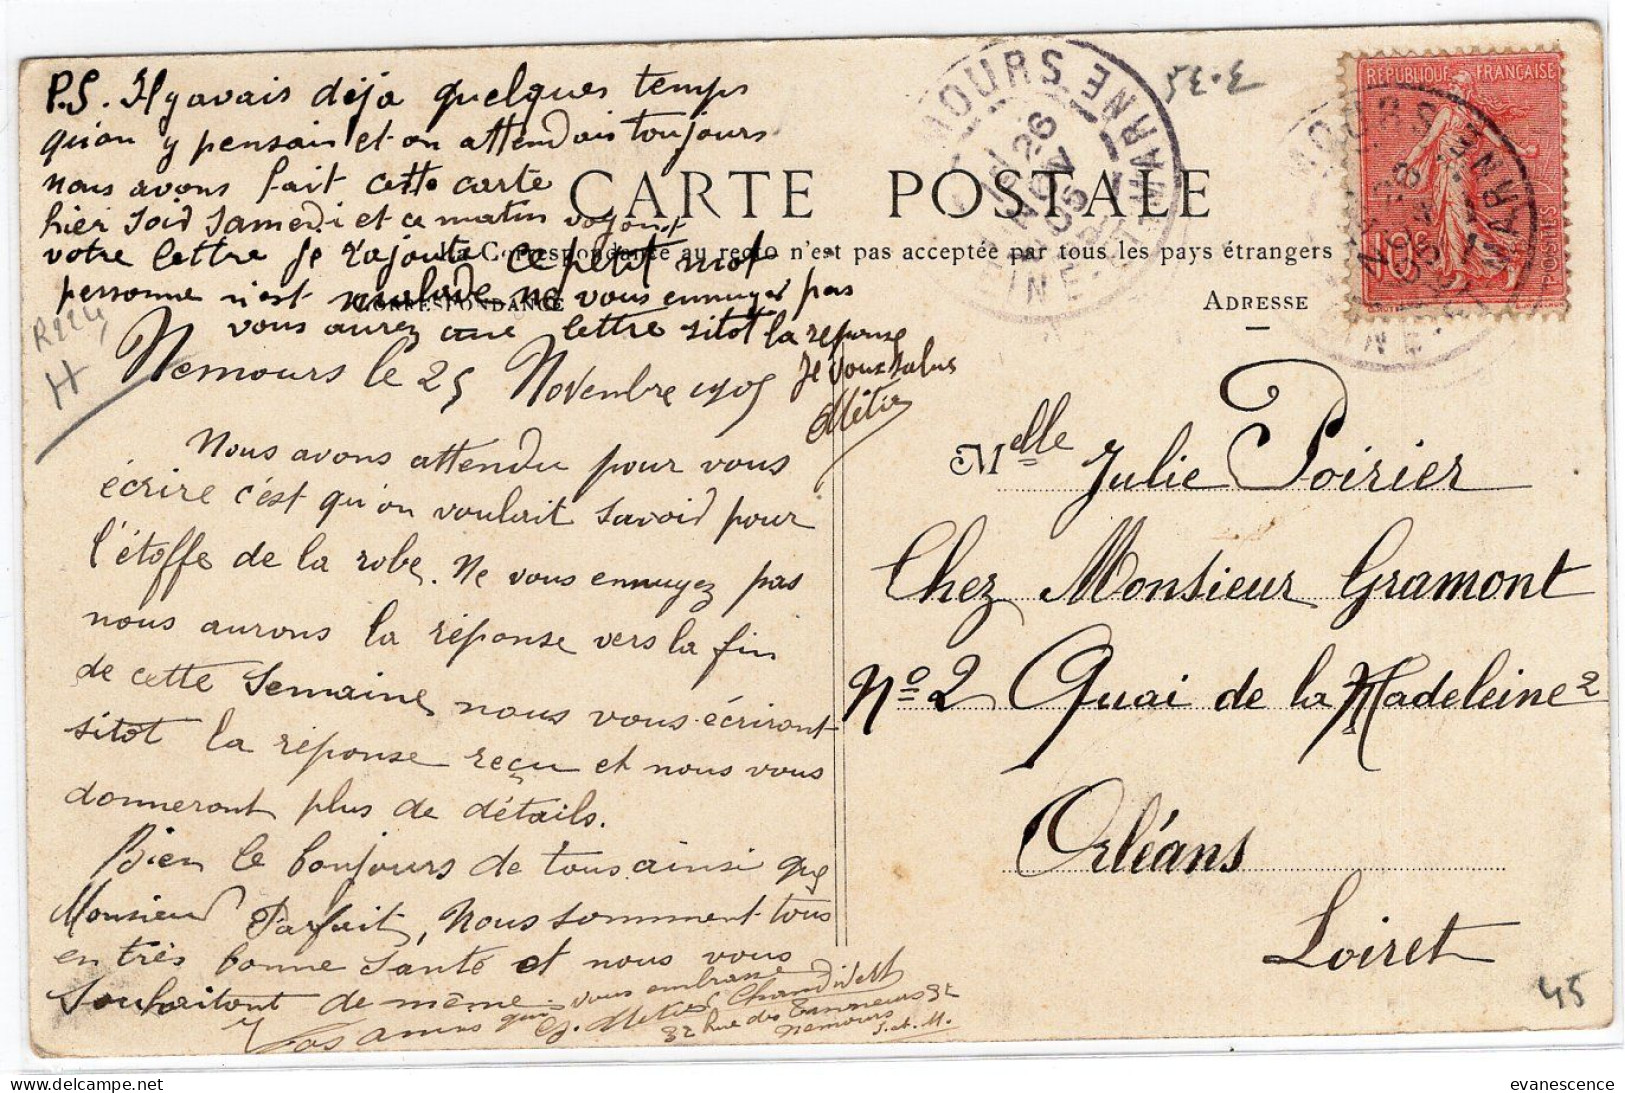 P.S. Il y avais déja quelques temps
qu'on y pensais et on attendais toujours
nous avons fait cette carte
hier soir samedi et ce matin voyant
votre lettre je rajoute ce petit mot
personne n'est malade ne vous ennuyer pas
vous aurez une lettre sitot la reponse
je vous salus
CARTE POSTALE
La Correspondance au recto n'est pas acceptée par tous les pays étrangers
CORRESPONDANCE
ADRESSE
RÉPUBLIQUE FRANÇAISE
10c
POSTES
NEMOURS
SEINE-ET-MARNE
26
NOV
05
R224
H
Nemours le 25 Novembre 1905
Nous avons attendu pour vous
écrire c'est qu'on voulait savoir pour
l'étoffe de la robe. Ne vous ennuyez pas
nous aurons la réponse vers la fin
de cette semaine nous vous écriront
sitot la réponse reçu et nous vous
donneront plus de détails.
Bien le bonjours de tous ainsi que
Monsieur Parfait, Nous somment tous
en très bonne santé et nous vous
souhaitont de même.
Vos amis qui vous embrasse
32 Rue des Tanneurs 32
Nemours
S.et.M.
Melle Julie Poirier
Chez Monsieur Gramont
No 2 Quai de la Madeleine 2
Orléans
Loiret
45
evanescence